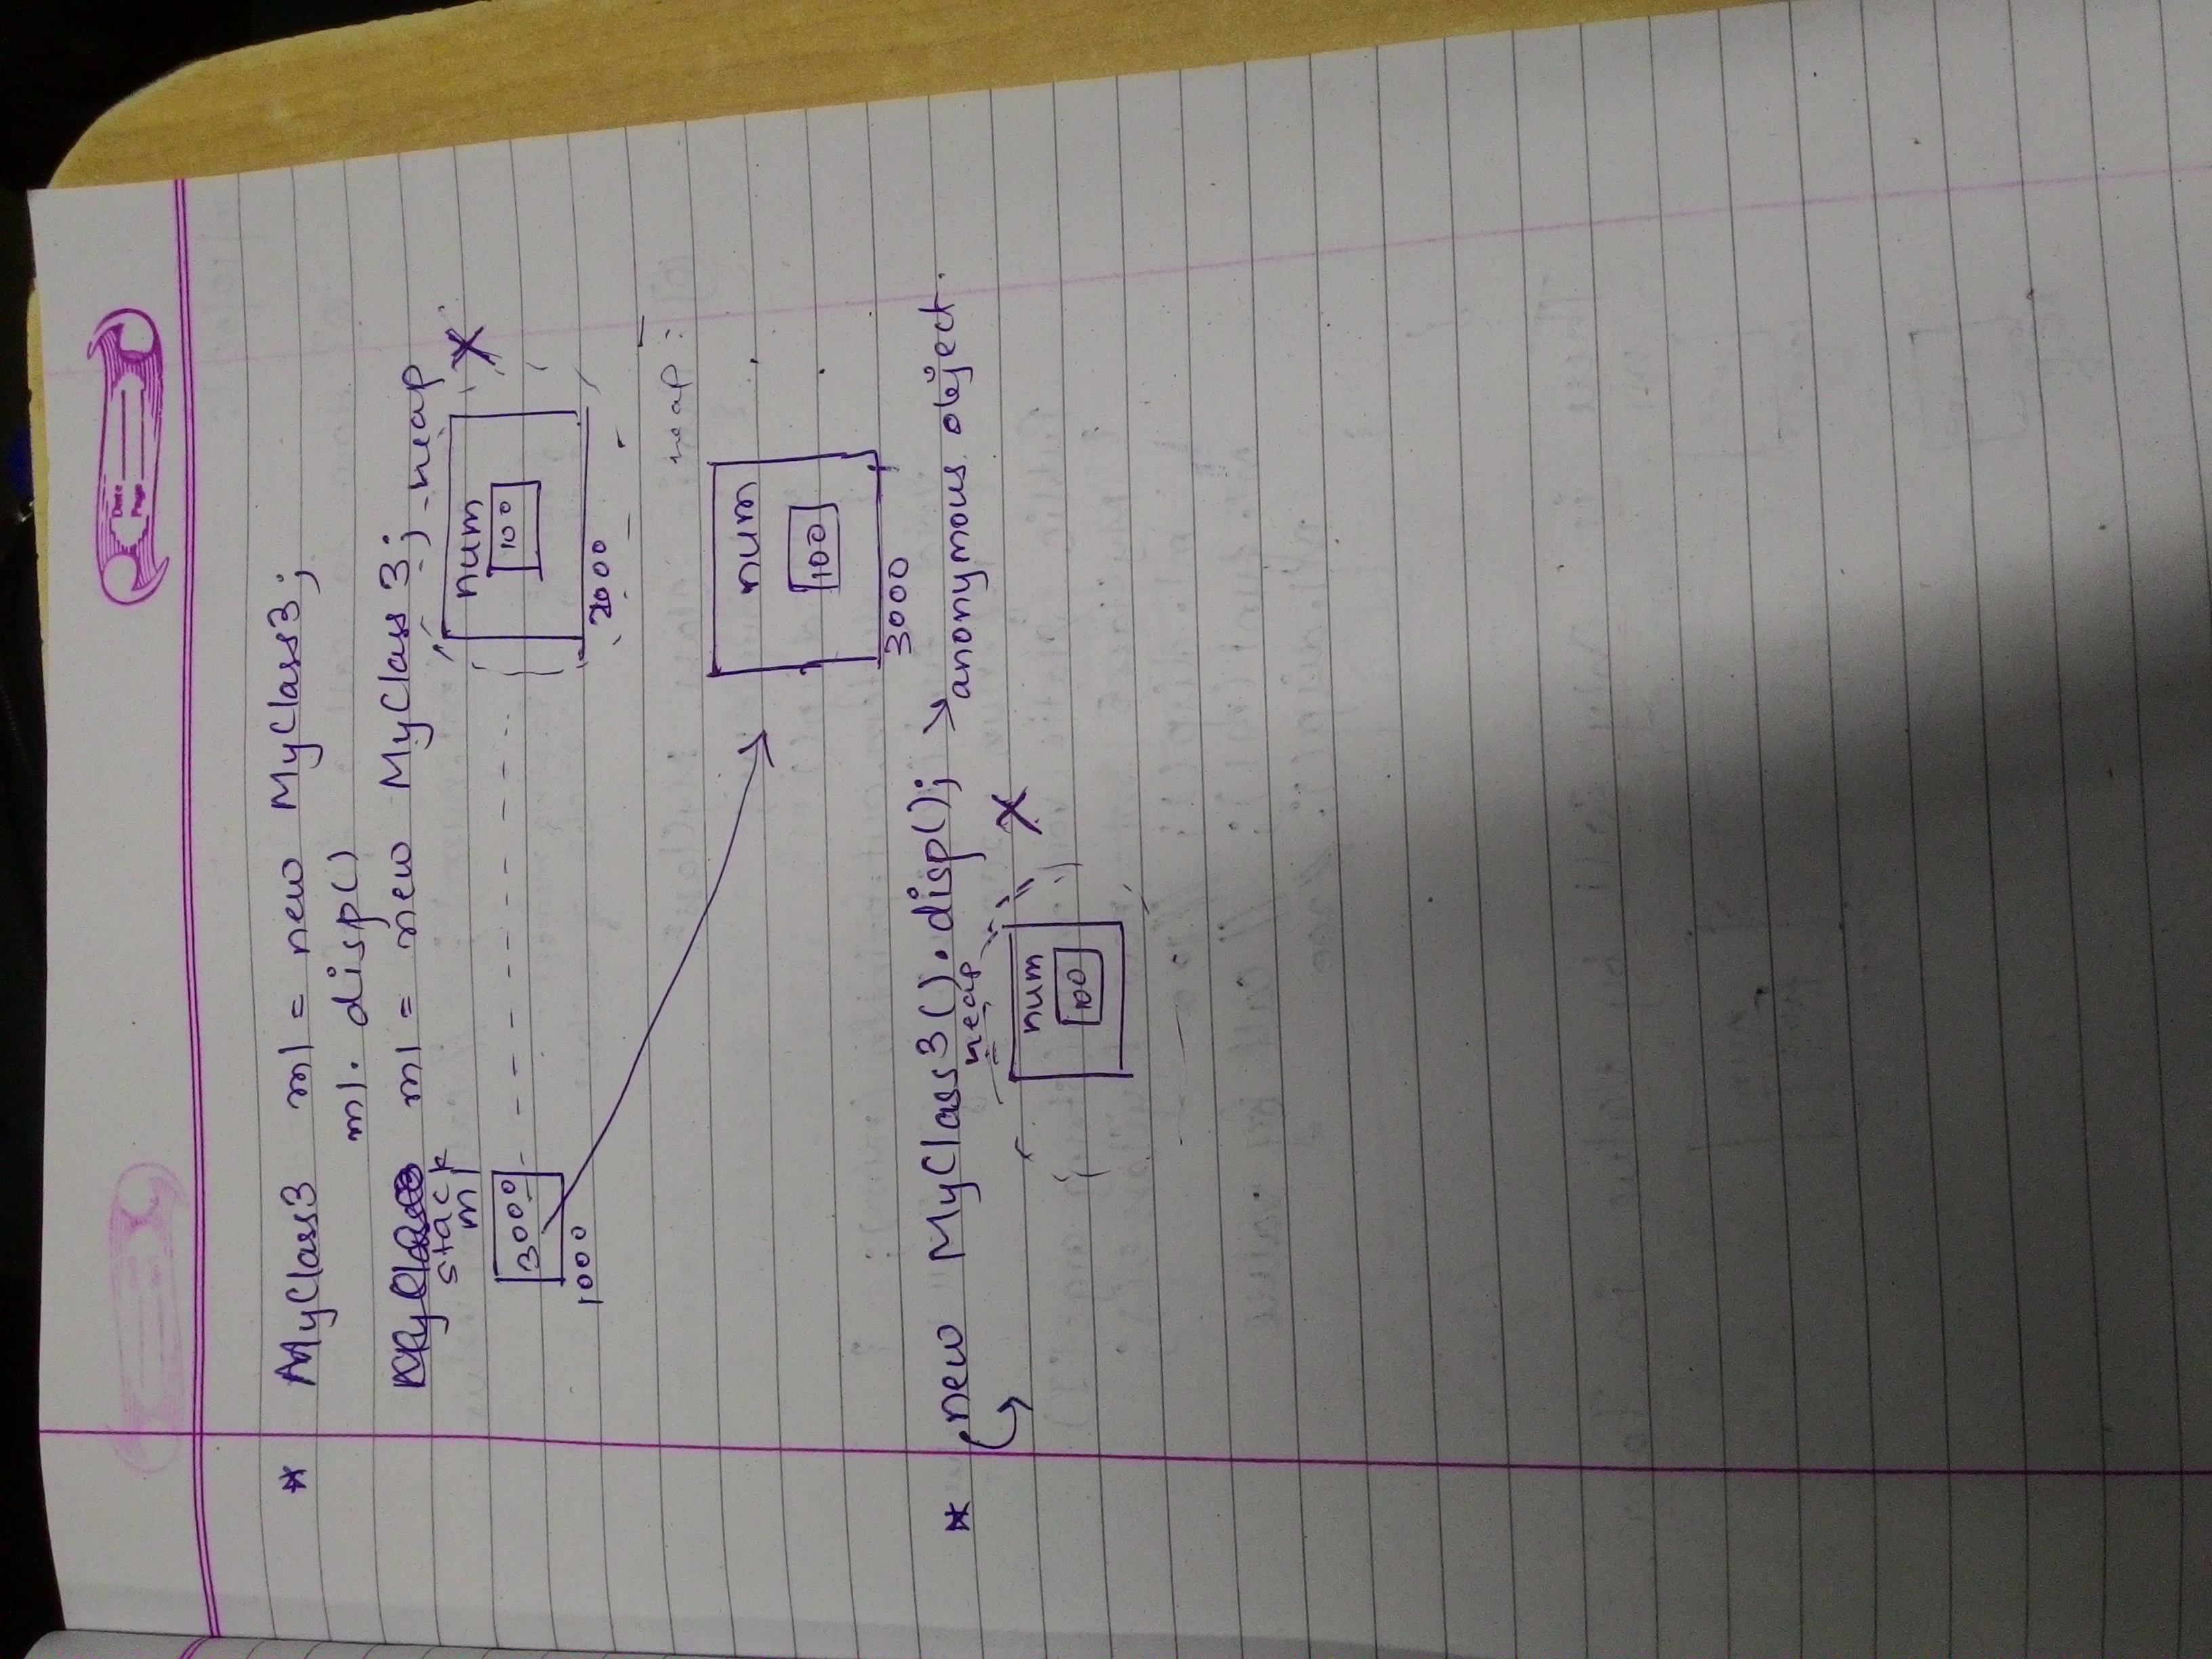 Date
Page
* MyClass3 m1 = new MyClass3;
m1. disp()
m1 = new MyClass3;
heap
stack
m1
num
3000
100
1000
2000
heap :
num
100
3000
* new MyClass3().disp(); → anonymous object.
heap
num
100